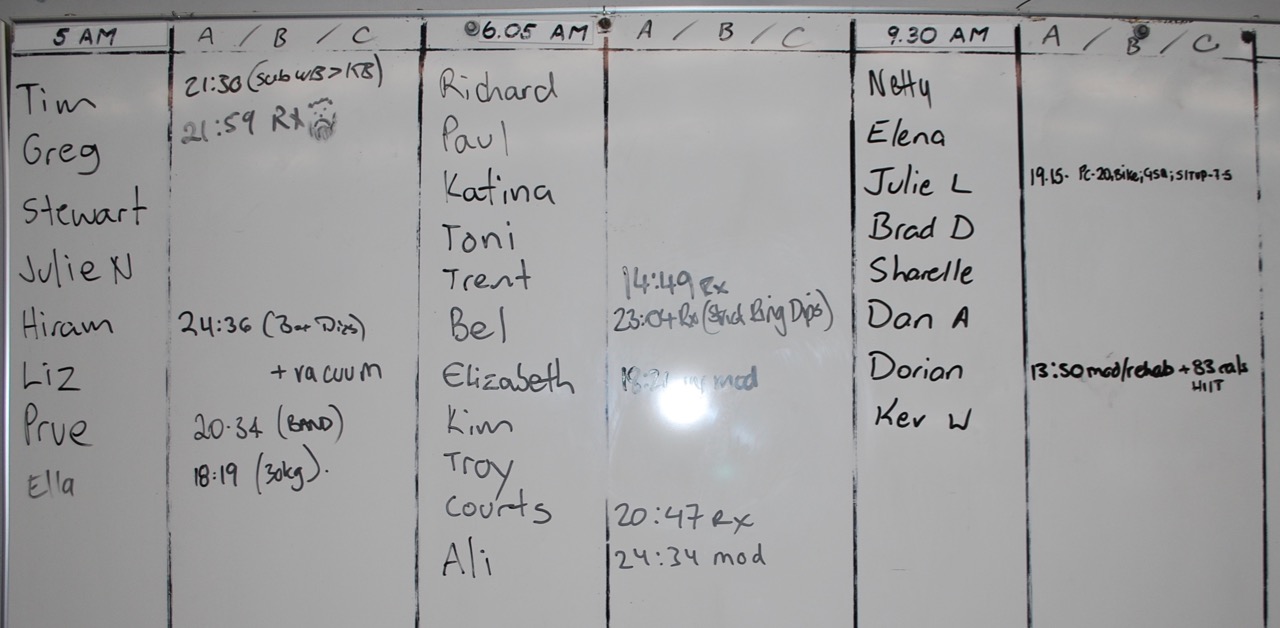 5 AM
A / B / C
Tim 21:30 (sub WB > KB)
Greg 21:59 Rx
Stewart
Julie N
Hiram 24:36 (Bar Dips)
Liz + vacuum
Prue 20.34 (BAND)
Ella 18:19 (30kg).
6.05 AM
A / B / C
Richard
Paul
Katina
Toni
Trent 14:49 Rx
Bel 23:04 Rx (Ring Dips)
Elizabeth mod
Kim
Troy
Courts 20:47 Rx
Ali 24:34 mod
9.30 AM
A / B / C
Netty
Elena
Julie L 19.15. PC-20, Bike; SITUP-75
Brad D
Sharelle
Dan A
Dorian 13:50 mod/rehab + 83 cals
HIIT
Kev W